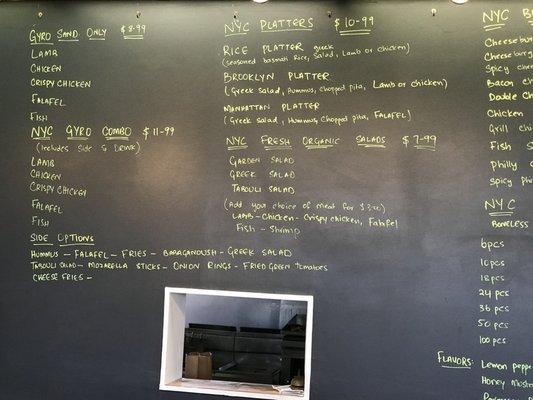 GYRO SAND ONLY $8.99
LAMB
CHICKEN
CRISPY CHICKEN
FALAFEL
FISH
NYC GYRO COMBO $11-99
(INCLUDES SIDE & DRINK)
LAMB
CHICKEN
CRISPY CHICKEN
FALAFEL
FISH
SIDE OPTIONS
HUMMUS - FALAFEL - FRIES - BABAGANOUSH - GREEK SALAD
TABOULI SALAD - MOZARELLA STICKS - ONION RINGS - FRIED GREEN TOMATOES
CHEESE FRIES -
NYC PLATTERS $10-99
RICE PLATTER greek
(seasoned basmati Rice, Salad, Lamb or chicken)
BROOKLYN PLATTER
(Greek salad, Hummus, chopped pita, Lamb or chicken)
MANHATTAN PLATTER
(Greek salad, Hummus, Chopped pita, FALAFEL)
NYC FRESH ORGANIC SALADS $7-99
GARDEN SALAD
GREEK SALAD
TABOULI SALAD
(Add your choice of meat for $3.00)
LAMB - Chicken - Crispy chicken, Falafel
Fish - Shrimp
NYC B
Cheesebur
Cheesebur
Spicy che
Bacon ch
Double Ch
Chicken
Grill chi
Fish S
Philly C
Spicy Phi
NYC
BONELESS
6pcs
10pcs
18pcs
24 pcs
36 pcs
50 pcs
100 pcs
FLAVORS: Lemon peppe
Honey Musta